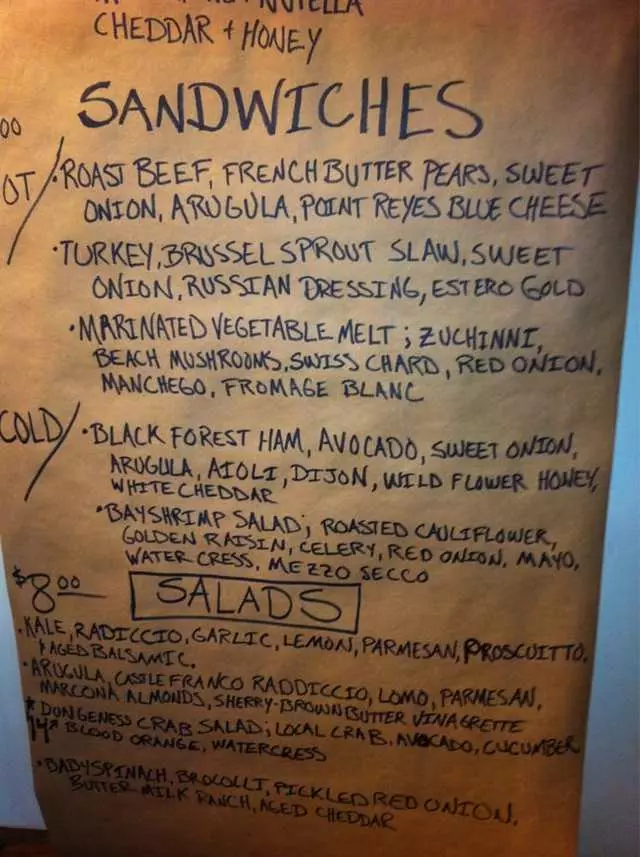 NUTELLA
CHEDDAR + HONEY
SANDWICHES
00
OT / · ROAST BEEF, FRENCH BUTTER PEARS, SWEET
ONION, ARUGULA, POINT REYES BLUE CHEESE
· TURKEY, BRUSSEL SPROUT SLAW, SWEET
ONION, RUSSIAN DRESSING, ESTERO GOLD
· MARINATED VEGETABLE MELT ; ZUCHINNI,
BEACH MUSHROOMS, SWISS CHARD, RED ONION,
MANCHEGO, FROMAGE BLANC
COLD / · BLACK FOREST HAM, AVOCADO, SWEET ONION,
ARUGULA, AIOLI, DIJON, WILD FLOWER HONEY,
WHITE CHEDDAR
· BAYSHRIMP SALAD; ROASTED CAULIFLOWER,
GOLDEN RAISIN, CELERY, RED ONION, MAYO,
WATER CRESS, MEZZO SECCO
$8.00 SALADS
· KALE, RADICCIO, GARLIC, LEMON, PARMESAN, PROSCUITTO,
+ AGED BALSAMIC.
· ARUGULA, CASTLE FRANCO RADDICCIO, LOMO, PARMESAN,
MARCONA ALMONDS, SHERRY-BROWN BUTTER VINAGRETTE
* DUNGENESS CRAB SALAD; LOCAL CRAB, AVOCADO, CUCUMBER
14* BLOOD ORANGE, WATERCRESS
· BABYSPINACH, BROCOLLI, PICKLED RED ONION,
BUTTER MILK RANCH, AGED CHEDDAR